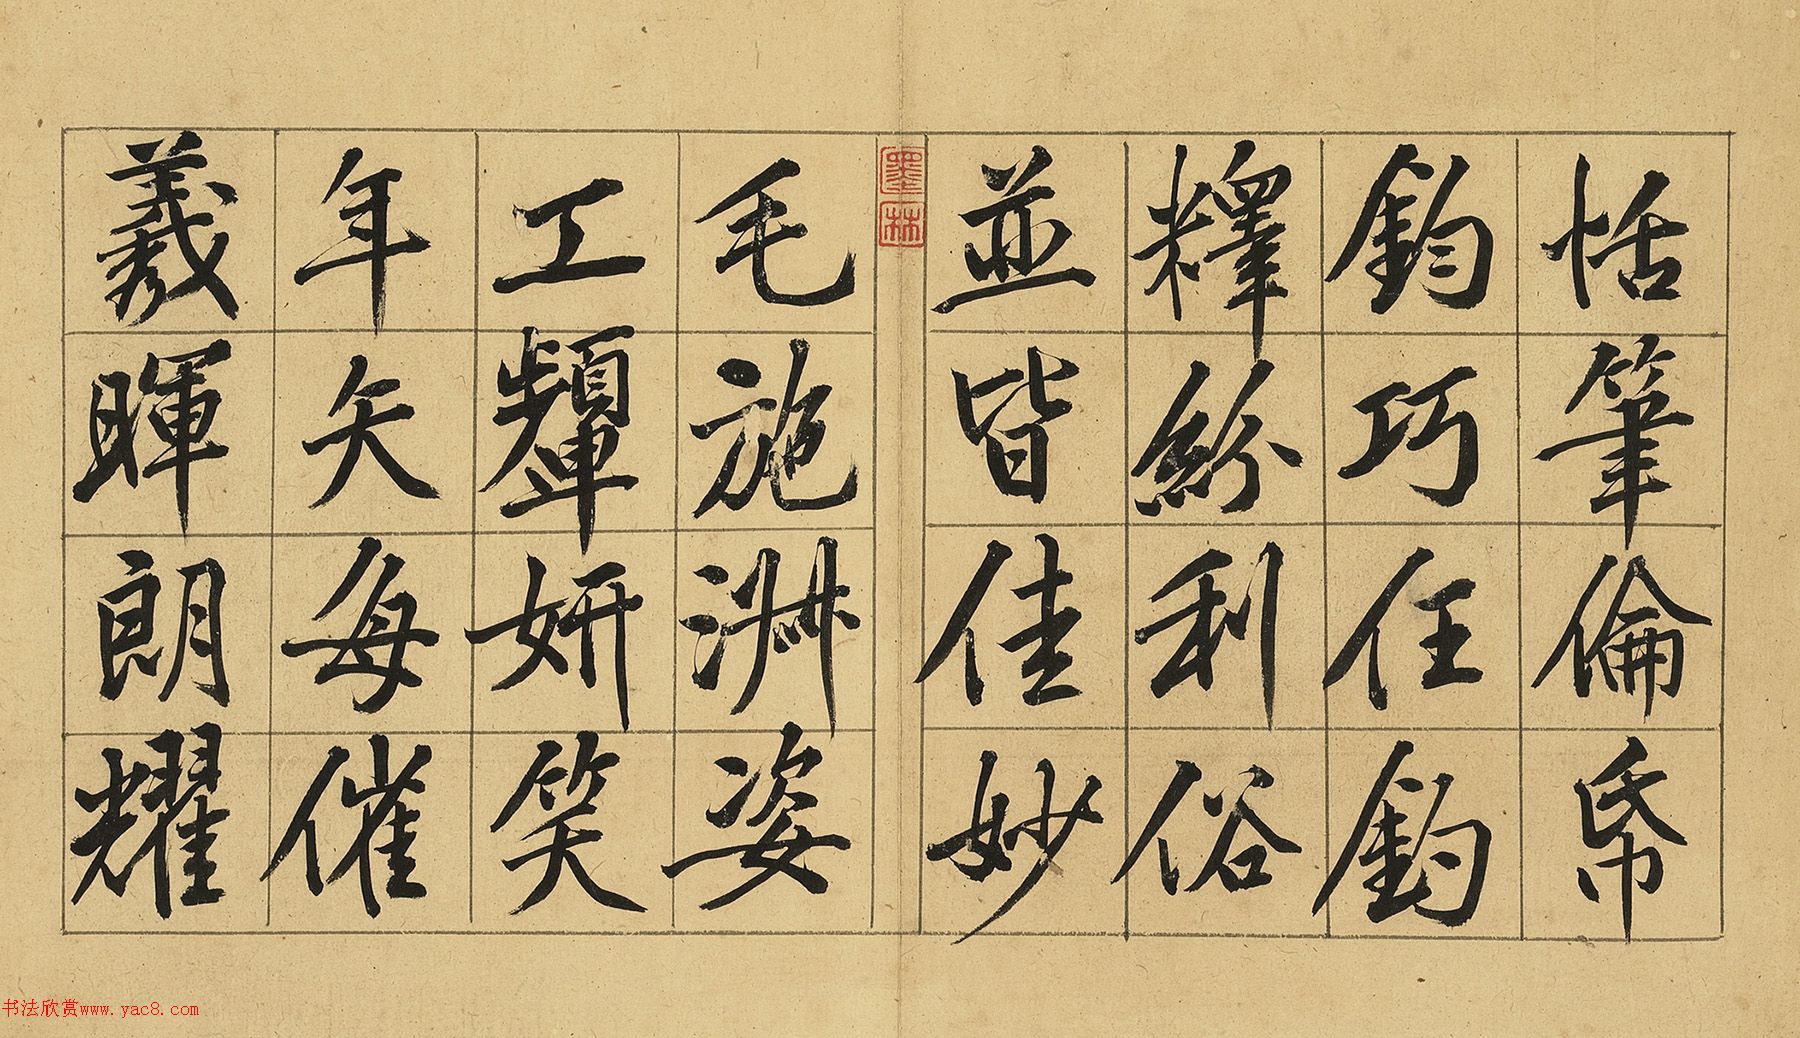 恬筆倫帋
鈞巧任鈞
釋紛利俗
並皆佳妙
毛施淑姿
工顰妍笑
年矢每催
羲暉朗耀
墨林
书法欣赏www.yac8.com